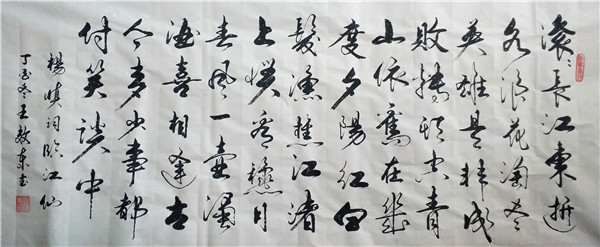 滚滚长江東逝
水浪花淘尽
英雄是非成
败转頭空青
山依舊在幾
度夕陽红白
髮渔樵江渚
上惯看秋月
春風一壶濁
酒喜相逢古
今多少事都
付笑谈中
楊慎词臨江仙
丁酉冬王东书